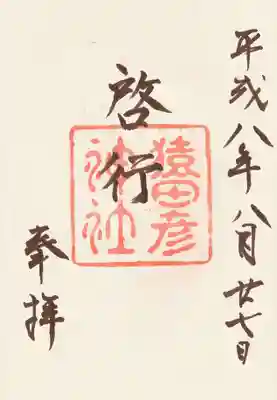 平成八年八月廿七日
啓行
猿田彦
神社
奉拝